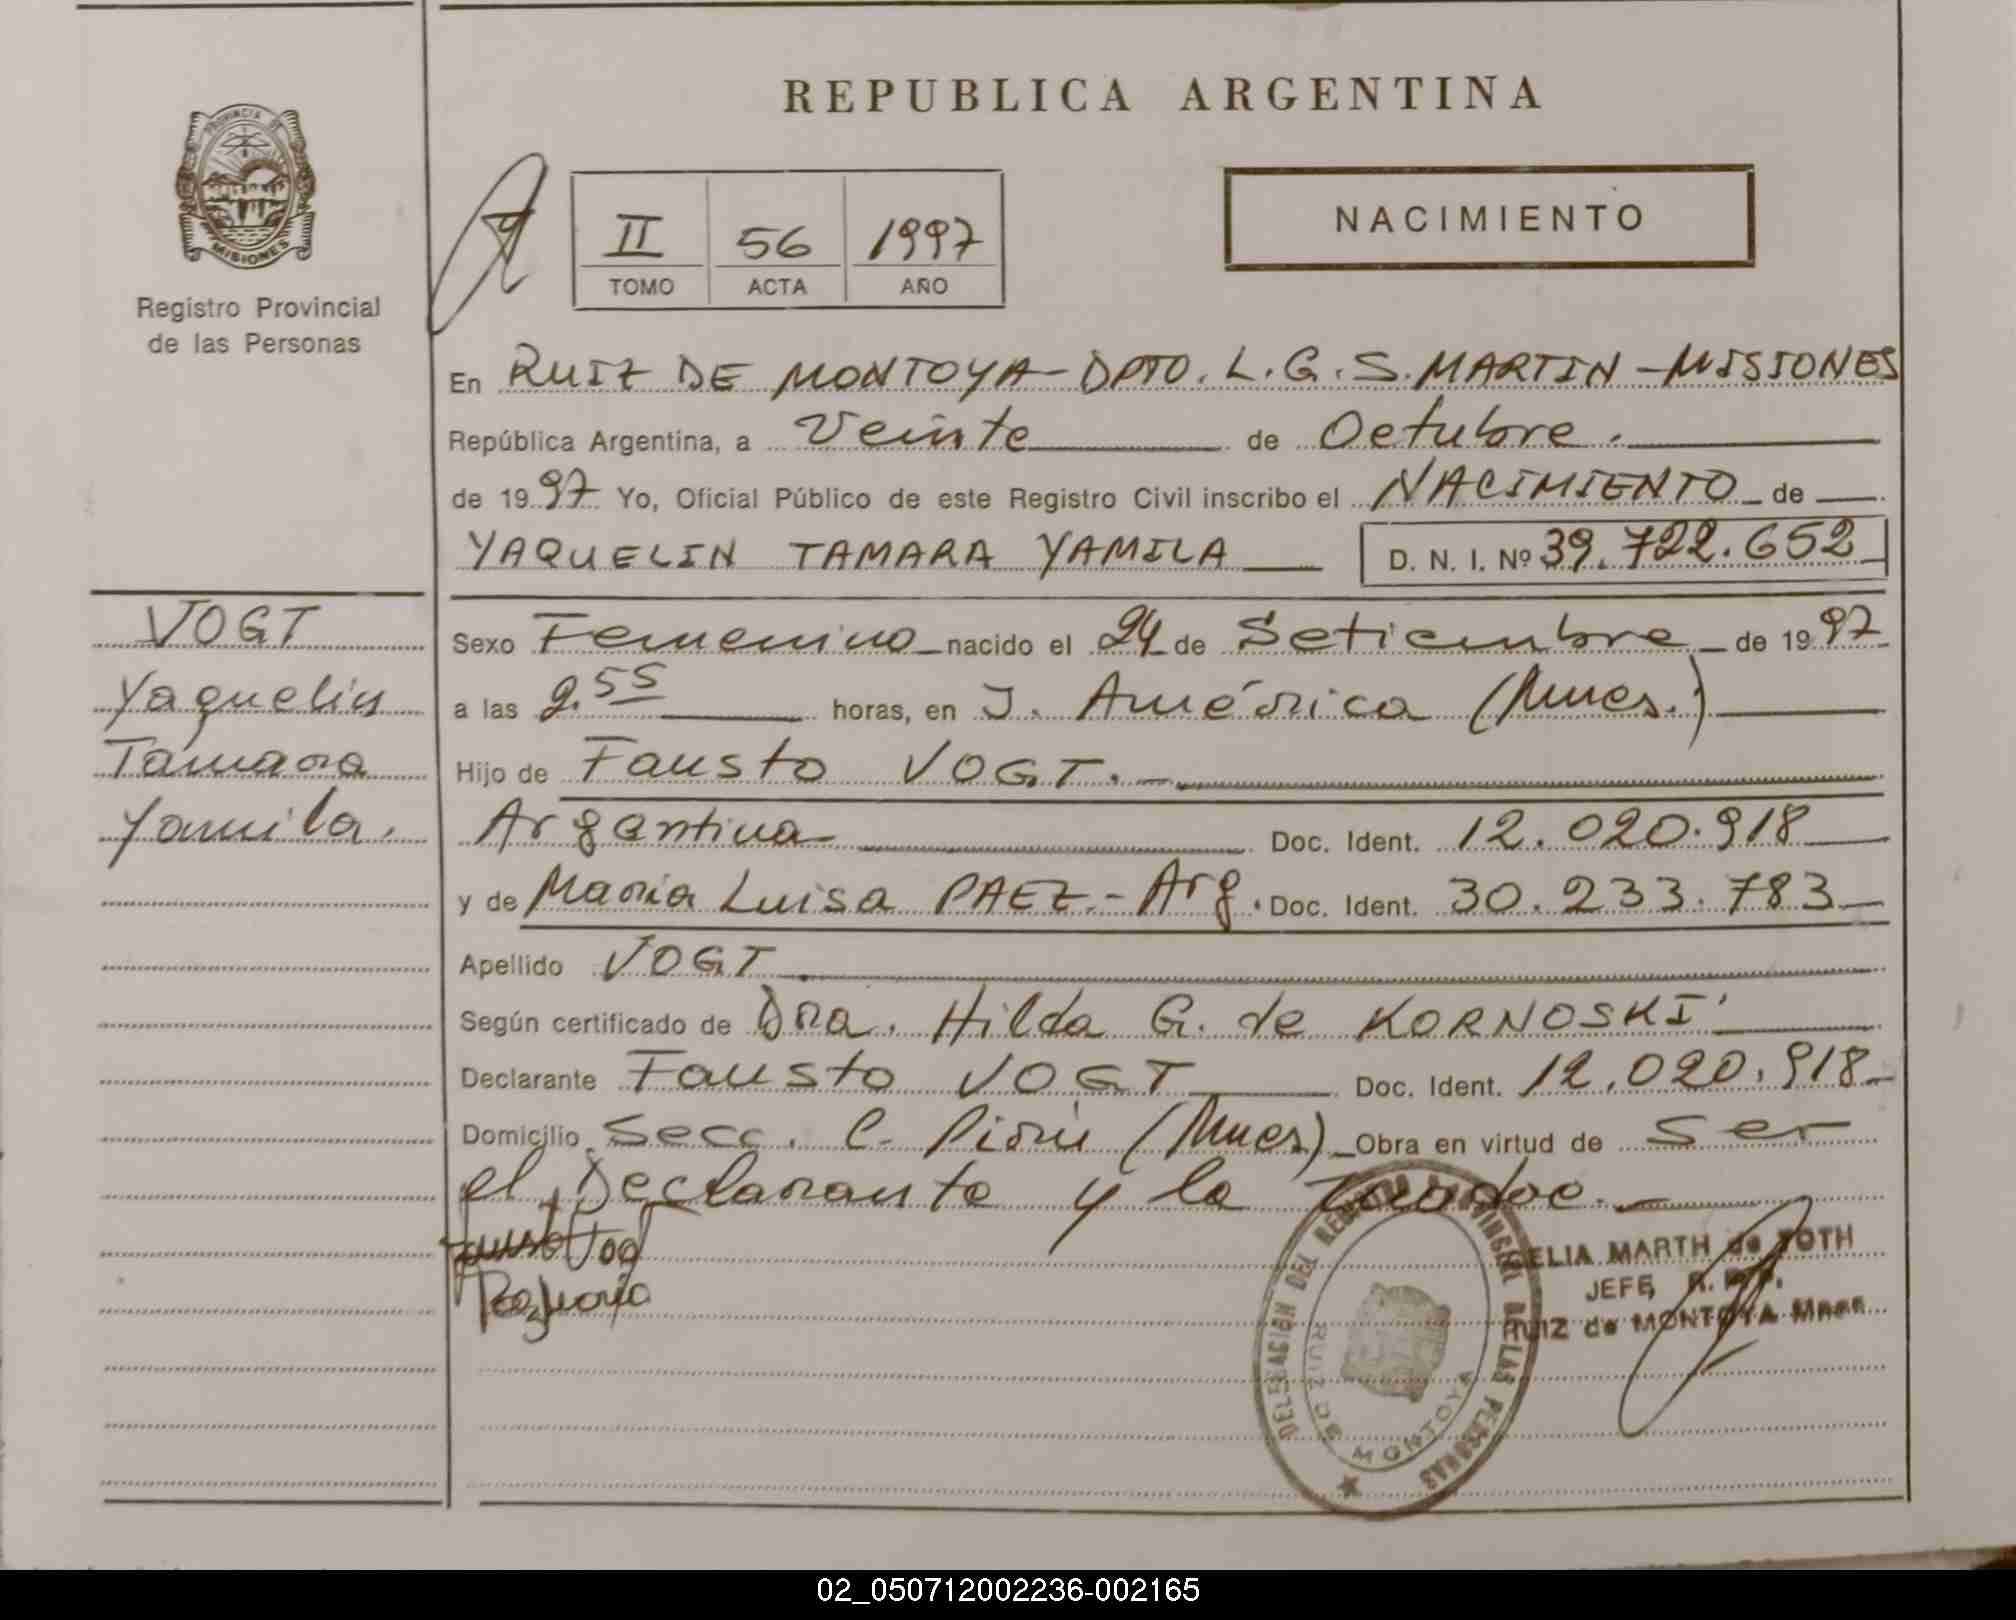 REPUBLICA ARGENTINA
PROVINCIA DE
MISIONES
Registro Provincial
de las Personas
II 56 1997
TOMO ACTA AÑO
NACIMIENTO
En RUIZ DE MONTOYA-DPTO. L.G.S. MARTIN-MISIONES
República Argentina, a Veinte de Octubre.
de 1997 Yo, Oficial Público de este Registro Civil inscribo el NACIMIENTO de
YAQUELIN TAMARA YAMILA D. N. I. Nº 39.722.652
VOGT
Yaquelin
Tamara
Yamila.
Sexo Femenino nacido el 24 de Setiembre de 1997
a las 9.55 horas, en J. América (Mnes.)
Hijo de Fausto VOGT.
Argentina Doc. Ident. 12.020.918
y de Maria Luisa PAEZ.- Arg. Doc. Ident. 30.233.783
Apellido VOGT
Según certificado de Dra. Hilda G. de KORNOSKI
Declarante Fausto VOGT Doc. Ident. 12.020.918
Domicilio Secc. C. Pirú (Mnes) Obra en virtud de Ser
el Declarante y la
DELEGACION DEL REGISTRO PROVINCIAL DE LAS PERSONAS
RUIZ DE MONTOYA
CELIA MARTH de TOTH
JEFE R. P. P.
RUIZ de MONTOYA Mnes.
02_050712002236-002165